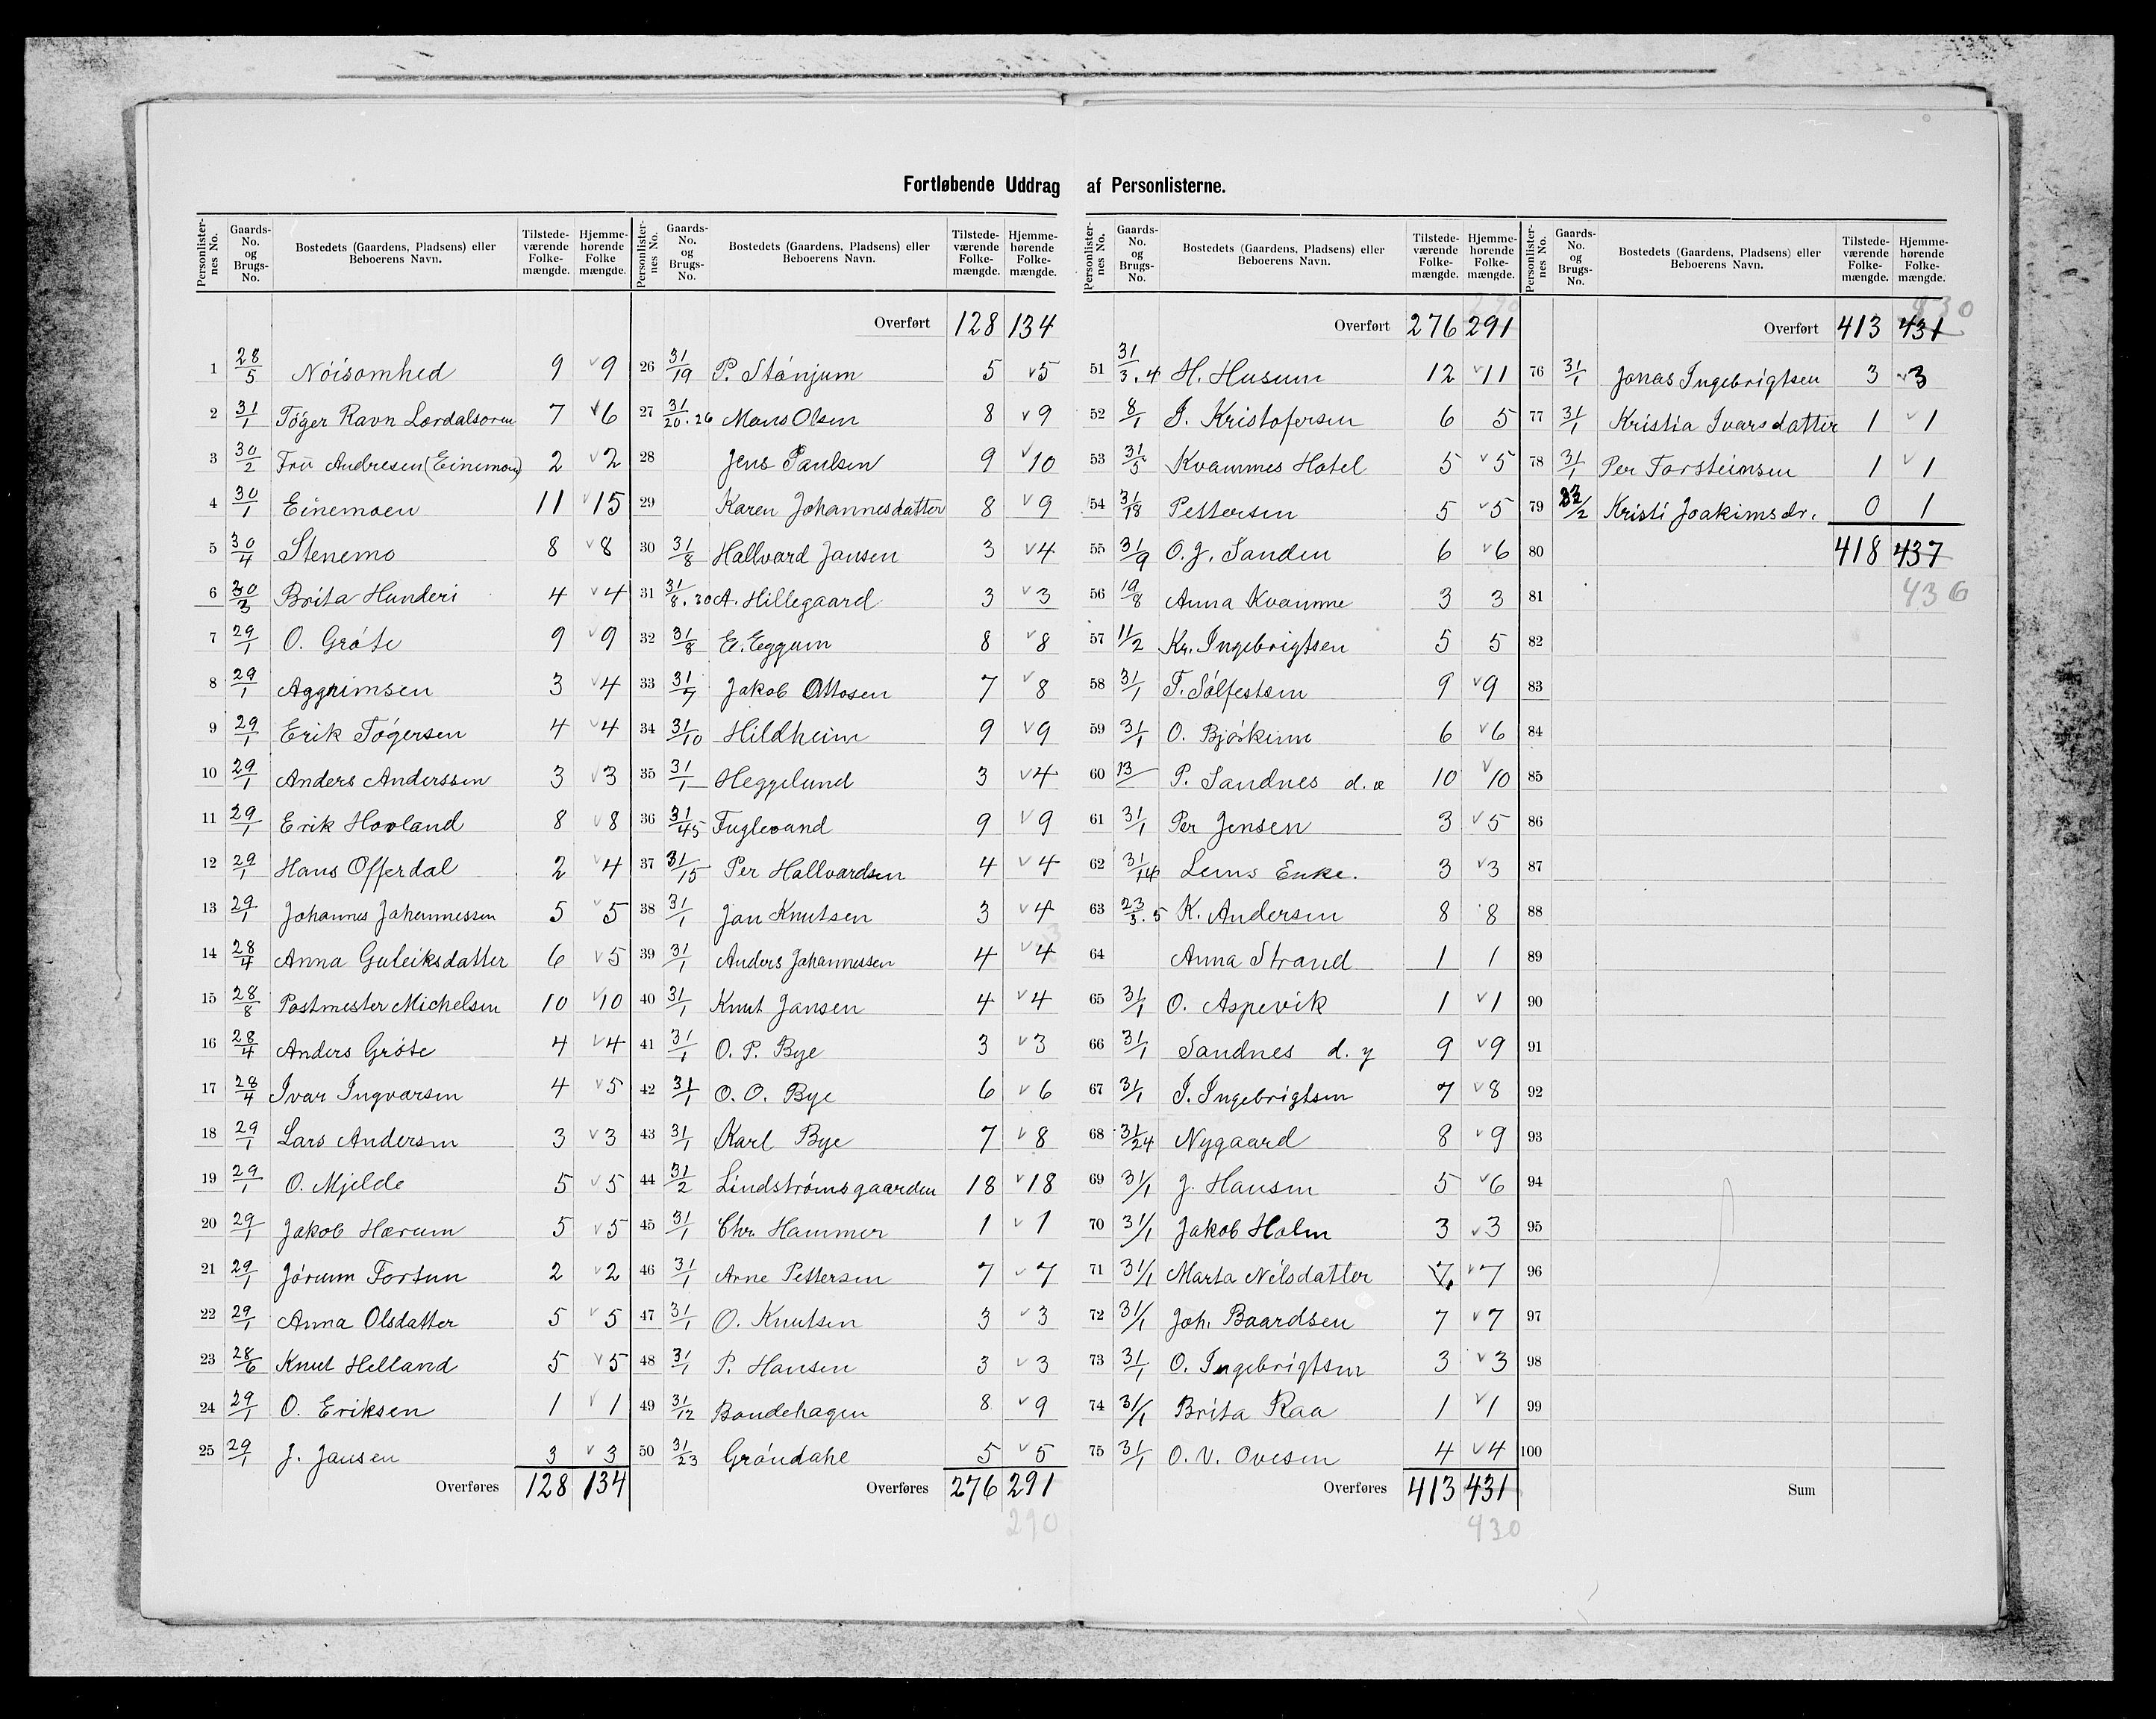 Fortløbende Uddrag af Personlisterne.
Personlister-nes No. | Gaards-No. og Brugs-No. | Bostedets (Gaardens, Pladsens) eller Beboerens Navn. | Tilstede-værende Folke-mængde. | Hjemme-hørende Folke mængde.
1 28/5 Nöisomhed 9 v9
2 31/1 Töger Ravn Lærdalsören 7 v6
3 30/2 Frü Andresen (Einemoen) 2 v2
4 30/1 Einemoen 11 v15
5 30/4 Stenemo 8 v8
6 30/3 Brita Hunderi 4 v4
7 29/1 O. Gröte 9 v9
8 29/1 Aggrimsen 3 v4
9 29/1 Erik Tögersen 4 v4
10 29/1 Anders Anderssen 3 v3
11 29/1 Erik Hovland 8 v8
12 29/1 Hans Offerdal 2 v4
13 29/1 Johannes Johannessen 5 v5
14 28/4 Anna Guleiksdatter 6 v5
15 28/8 Postmester Michelsen 10 v10
16 28/4 Anders Gröte 4 v4
17 28/4 Ivar Ingvarsen 4 v5
18 29/1 Lars Andersen 3 v3
19 29/1 O. Mjelde 5 v5
20 29/1 Jakob Hærum 5 v5
21 29/1 Jörum Fortun 2 v2
22 29/1 Anna Olsdatter 5 v5
23 28/6 Knut Helland 5 v5
24 29/1 O. Eriksen 1 v1
25 29/1 J. Jansen 3 v3
Overføres 128 134
Personlister-nes No. | Gaards-No. og Brugs-No. | Bostedets (Gaardens, Pladsens) eller Beboerens Navn. | Tilstede-værende Folke-mængde. | Hjemme-hørende Folke-mængde.
Overført 128 134
26 31/19 P. Stánjum 5 v5
27 31/20.26 Mons Olsen 8 v9
28 Jens Paulsen 9 v10
29 Karen Johannesdatter 8 v9
30 31/8 Hallvard Jansen 3 v4
31 31/8.30 A. Hillegaard 3 v3
32 31/8 E. Eggum 8 v8
33 31/7 Jakob Ottosen 7 v8
34 31/10 Hildheim 9 v9
35 31/1 Heggelund 3 v4
36 31/45 Fuglevand 9 v9
37 31/15 Per Hallvardsen 4 v4
38 31/1 Jan Knutsen 3 v4
39 31/1 Anders Johannessen 4 v4 3
40 31/1 Knut Jansen 4 v4
41 31/1 O. P. Bye 3 v3
42 31/1 O. O. Bye 6 v6
43 31/1 Karl Bye 7 v8
44 31/2 Lindströmsgaarden 18 v18
45 31/1 Chr. Hammer 1 v1
46 31/1 Arne Pettersen 7 v7
47 31/1 O. Knutsen 3 v3
48 31/1 P. Hansen 3 v3
49 31/12 Bondehagen 8 v9
50 31/23 Gröndahl 5 v5
Overføres 276 291
290
Personlister-nes No. | Gaards-No. og Brugs-No. | Bostedets (Gaardens, Pladsens) eller Beboerens Navn. | Tilstede-værende Folke-mængde. | Hjemme-hørende Folke-mængde.
Overført 276 291
51 31/3.4 H. Husum 12 v11
52 8/1 I. Kristofersen 6 5
53 31/5 Kvammes Hotel 5 v5
54 31/18 Pettersen 5 v5
55 31/9 O. J. Sanden 6 v6
56 19/8 Anna Kvamme 3 3
57 11/2 Kr. Ingebrigtsen 5 5
58 31/1 T. Sölfestsen 9 v9
59 31/1 O. Bjöskum 6 v6
60 13/ P. Sandnes d. æ 10 v10
61 31/1 Per Jensen 3 v5
62 31/14 Lems Enke. 3 v3
63 23/3.5 K. Andersen 8 8
64 Anna Strand 1 1
65 31/1 O. Aspevik 1 v1
66 31/1 Sandnes d. y 9 v9
67 31/1 I. Ingebrigtsen 7 v8
68 31/24 Nygaard 8 v9
69 31/1 J. Hansen 5 v6
70 31/1 Jakob Holm 3 v3
71 31/1 Marta Nilsdatter 7 v7
72 31/1 Joh. Baardsen 7 v7
73 31/1 O. Ingebrigtsen 3 v3
74 31/1 Brita Raa 1 v1
75 31/1 O. V. Ovesen 4 v4
Overføres 413 431
430
Personlister-nes No. | Gaards-No. og Brugs-No. | Bostedets (Gaardens, Pladsens) eller Beboerens Navn. | Tilstede-værende Folke-mængde. | Hjemme-hørende Folke-mængde.
430
Overført 413 431
76 31/1 Jonas Ingebrigtsen 3 v3
77 31/1 Kristia Ivarsdatter 1 v1
78 31/1 Per Torsteinsen 1 v1
79 /2 Kristi Joakimsdr. 0 1
80 418 437
81 436
82
83
84
85
86
87
88
89
90
91
92
93
94
95
96
97
98
99
100
Sum